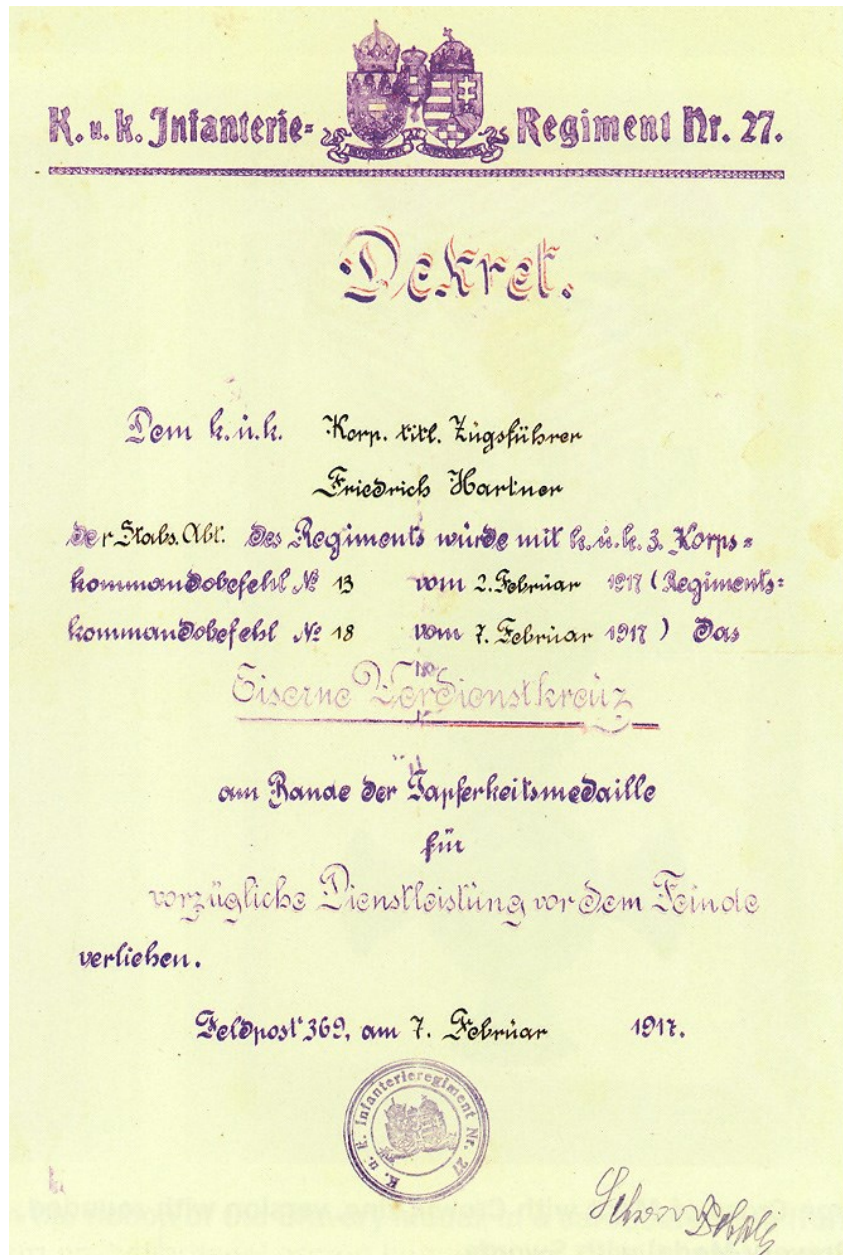 K. u. k. Infanterie= Regiment Nr. 27.
Dekret.
Dem k. u. k. Korp. titl. Zugsführer
Friedrich Hartner
der Stabs. Abt. des Regiments wurde mit k. u. k. 3. Korps=
kommandobefehl № 13 vom 2. Februar 1917 (Regiments=
kommandobefehl № 18 vom 7. Februar 1917) das
Eiserne Verdienstkreuz
am Bande der Tapferkeitsmedaille
für
vorzügliche Dienstleistung vor dem Feinde
verliehen.
Feldpost 369, am 7. Februar 1917.
K. u. k. Infanterieregiment Nr. 27